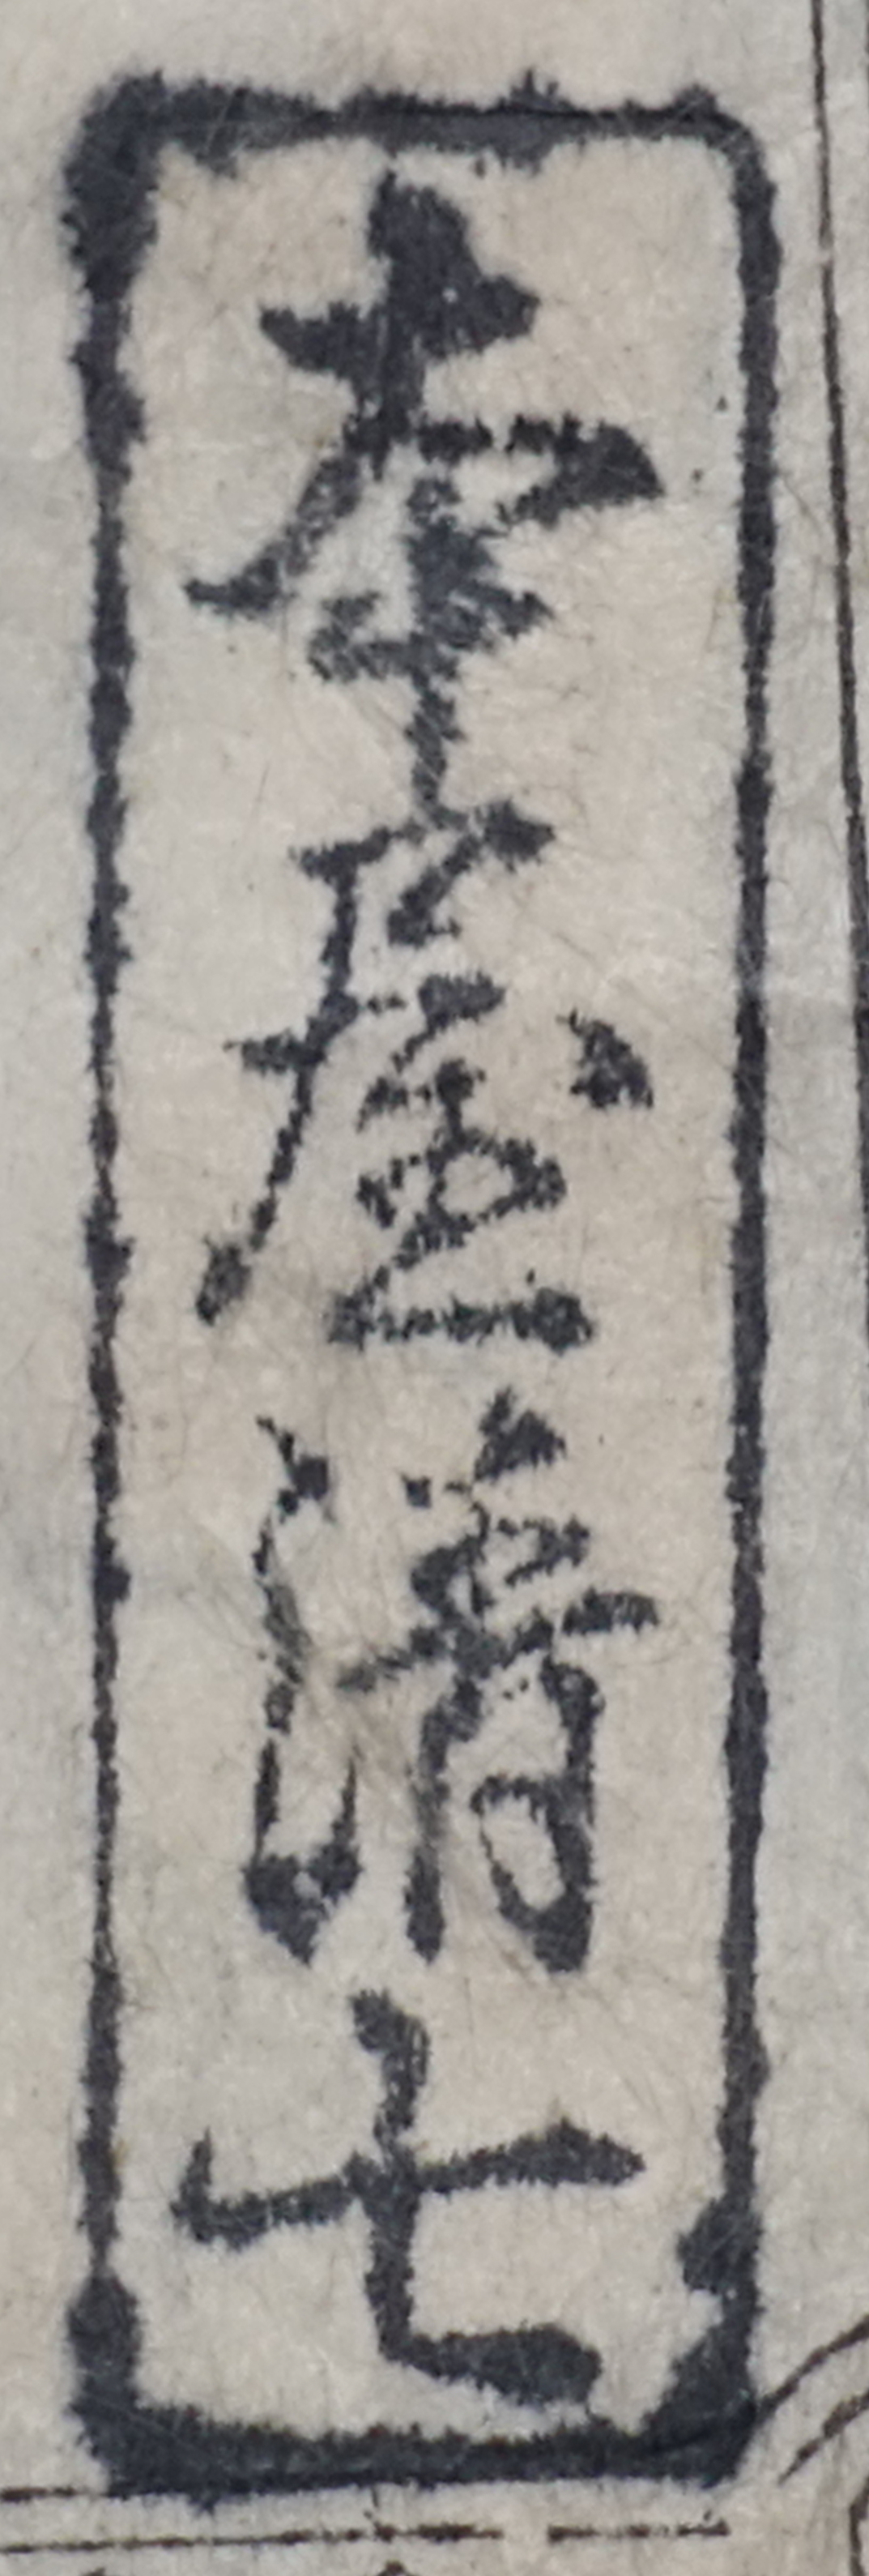 本屋清七